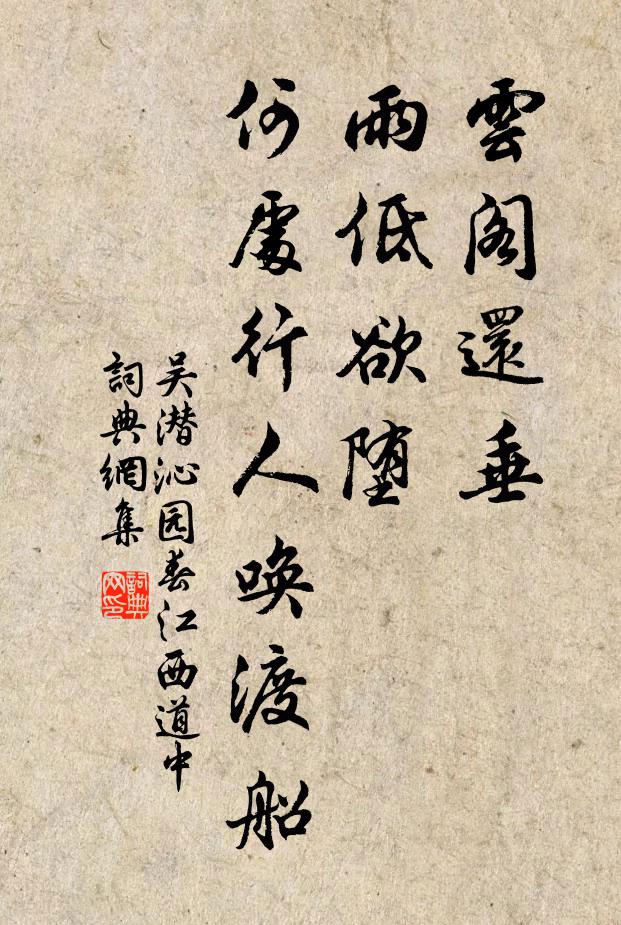 雲閣還垂
雨低欲堕
何處行人唤渡船
吴潜沁园春江西道中
詞典網集
詞典网印